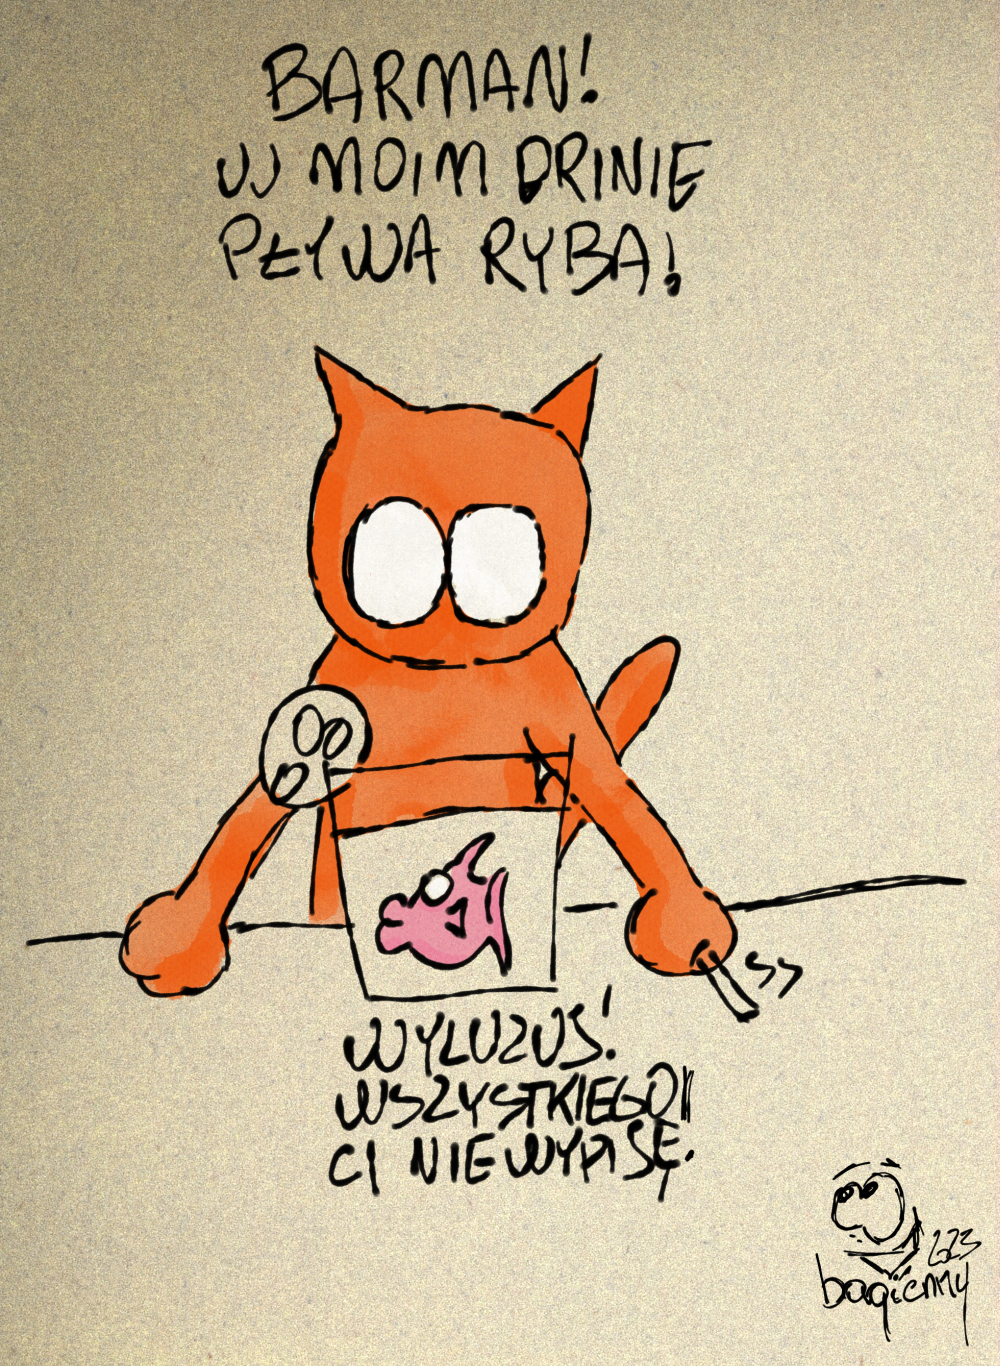 BARMAN!
W MOIM DRINIE
PŁYWA RYBA!
WYLUZUŚ!
WSZYSTKIEGO
CI NIE WYPISĘ.
223
bagienny